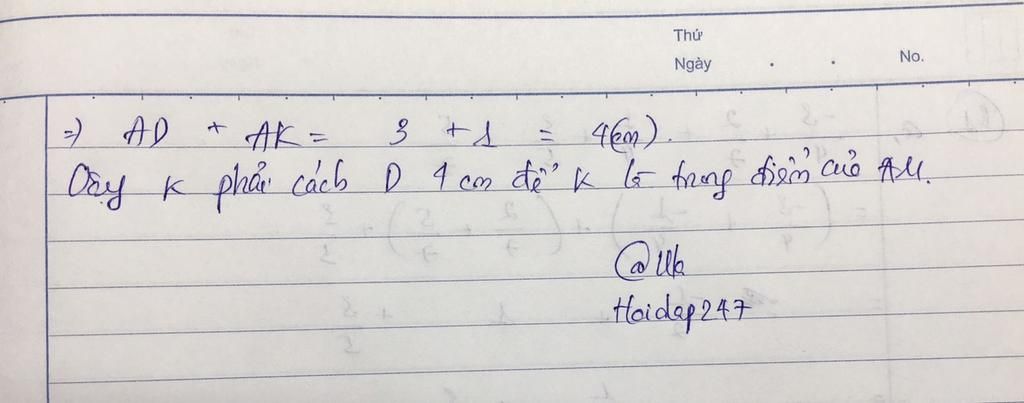 Thứ
Ngày . . No.
=) AD + AK = 3 + 1 = 4(cm).
Vậy K phải cách D 4 cm để K là trung điểm của AM.
@Uk
Hoidap247